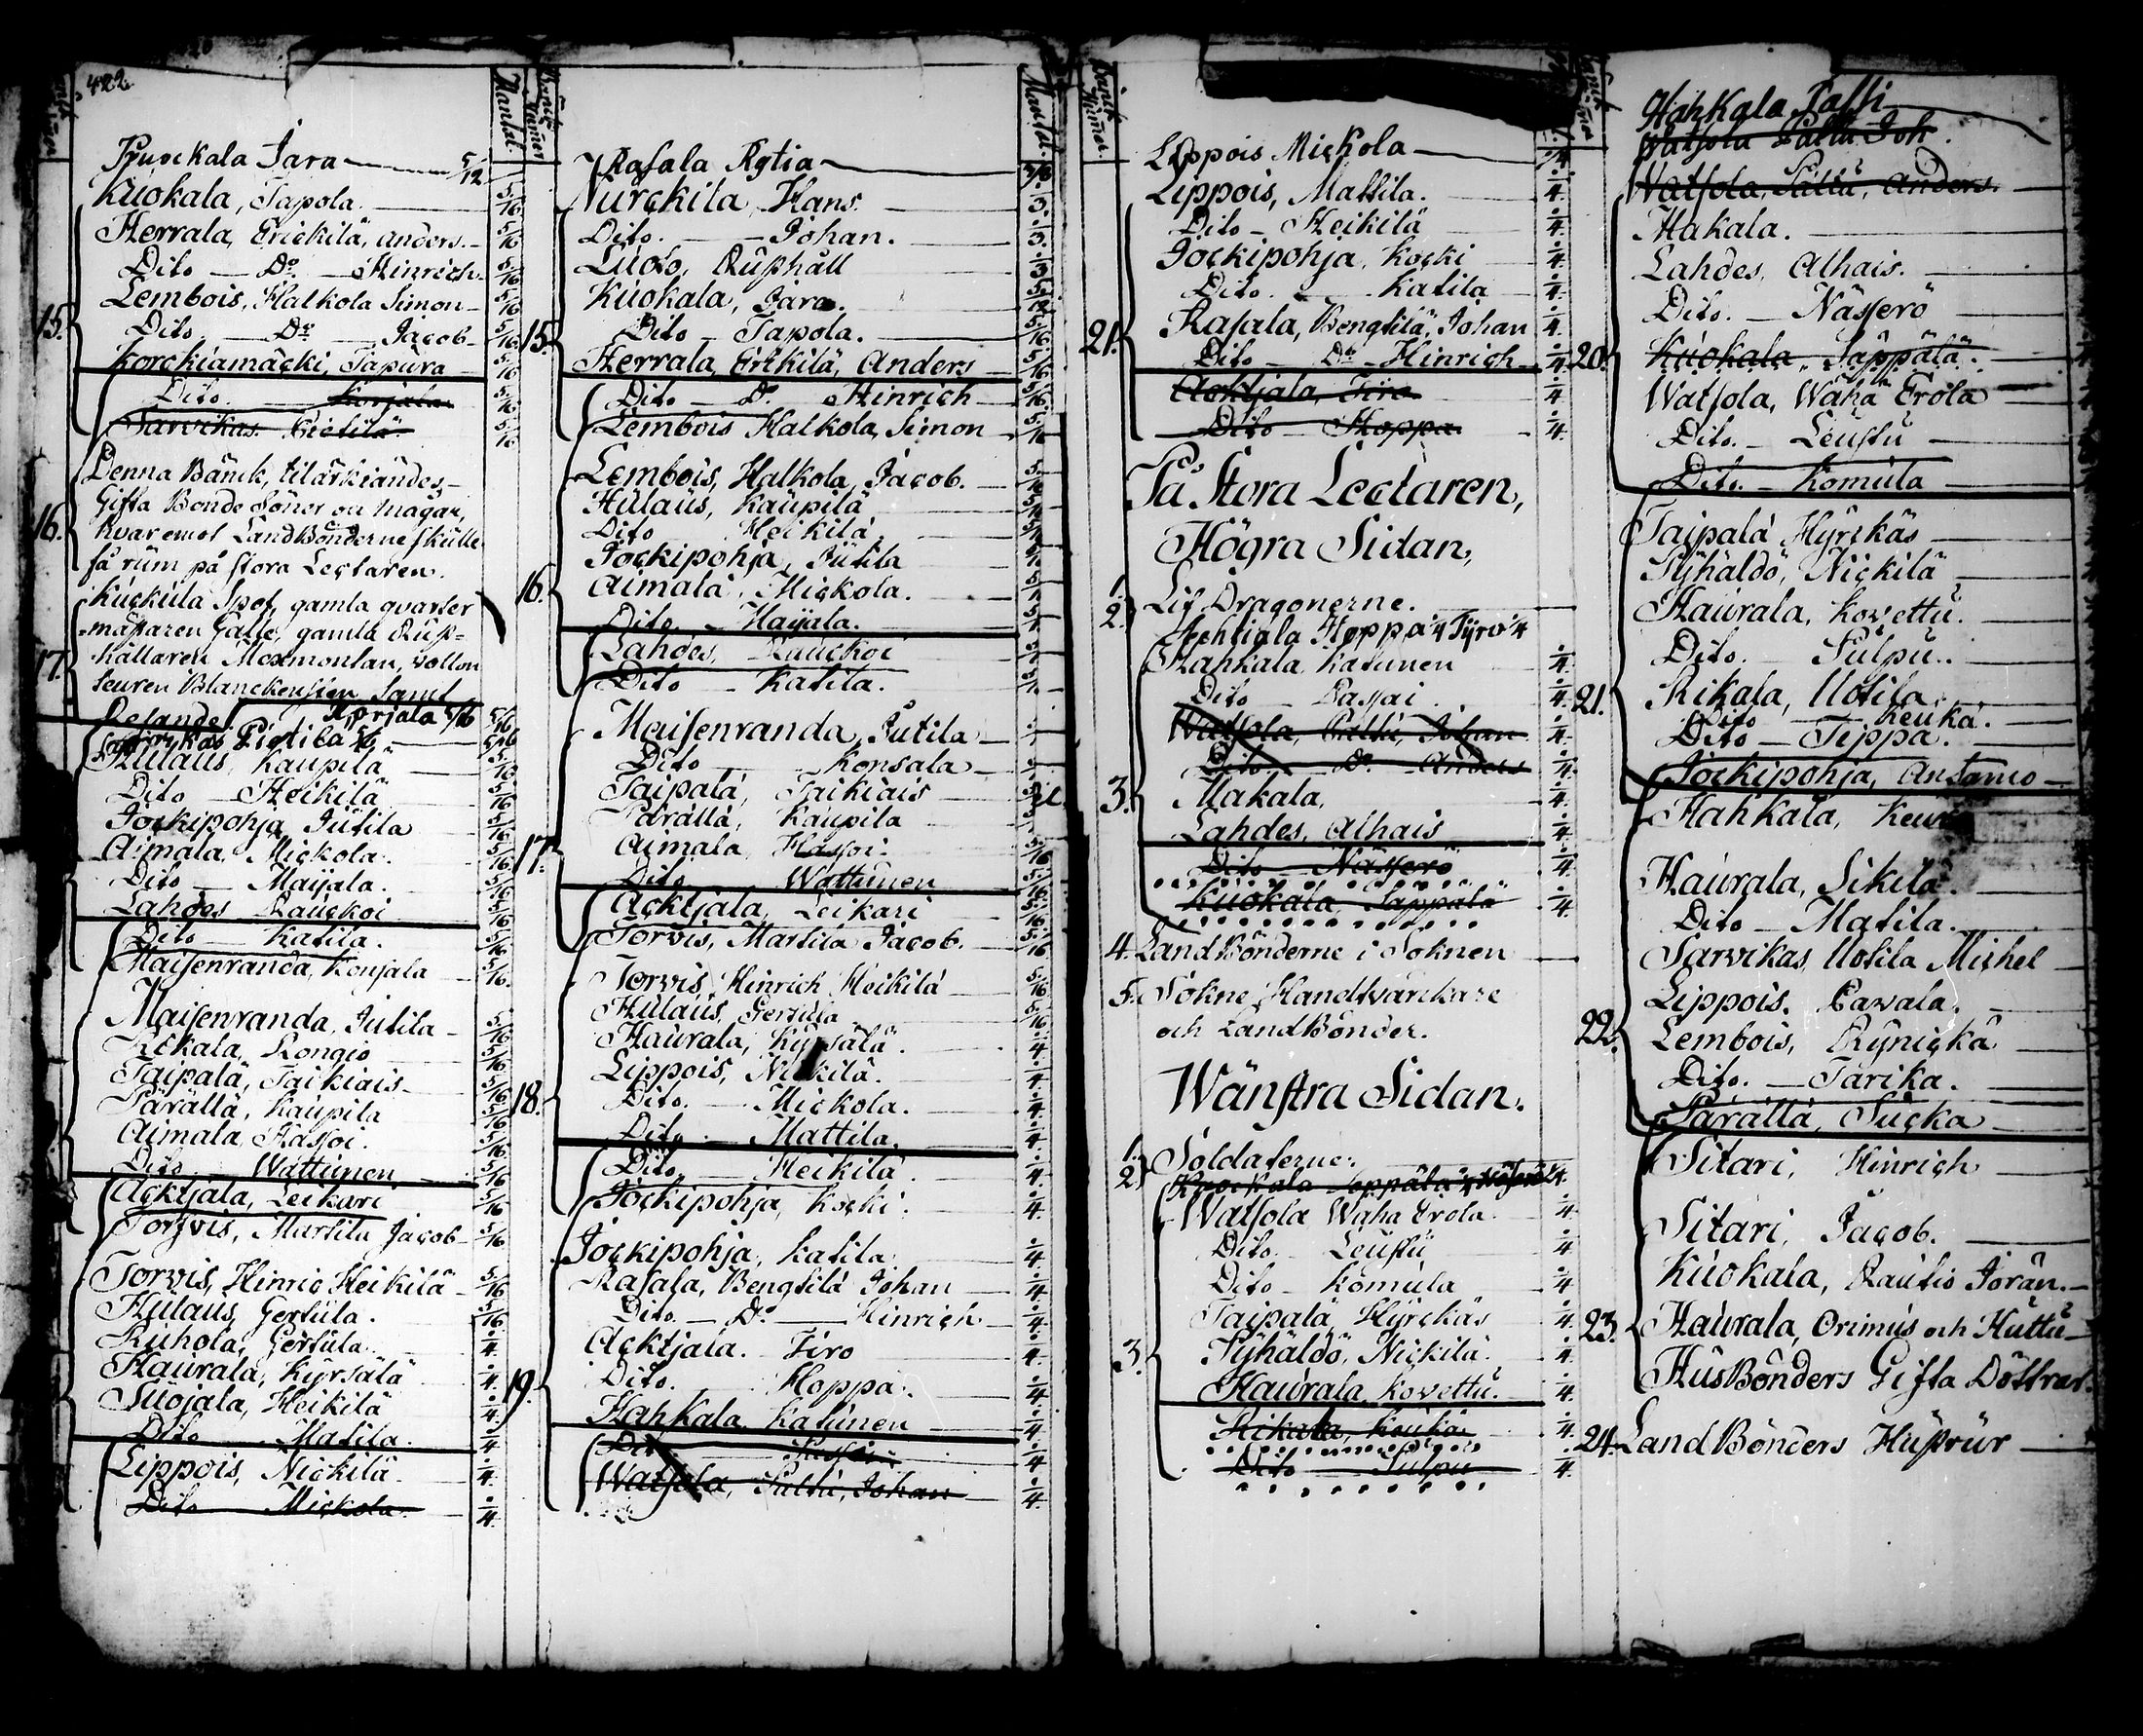 422.
Mantal.
Kuockala Jara 5/12
Kuokala, Tapola. 5/16
Herrala, Erickilä, Anders. 5/16
Dito — Do. — Hinrich. 5/16
Lembois, Halkola Simon 5/16
15. Dito — Do — Jacob 5/16
Korckiamäcki, Tapura 5/16
Dito. Korjala 5/16
Sarvikas. Pietilä 5/16
Denna Bänck, tilärkiändes,
Gifta Bonde Söner ou mågar,
16. hvaremot LandBönderne skulle
få rum på stora Lectaren.
Kuckula Spof, gamla qvarter
mästaren Galle, gamla Rusp-
17. hållaren Moxmontan, vollon
teuren Blanckensten Samt
Resande. Korjala 5/16
Sarvikas Pietilä 5/16
Hulaus, Kaupila 5/16
Dito — Heikilä 5/16
Jockipohja Jutila 5/16
Aimala, Mickola. 5/16
Dito — Maijala. 5/16
Lahdes Rauckoi 5/16
Dito — Katila. 5/16
Maisenranda, Konsala 5/16
Maisenranda, Jutila 5/16
Rekala, Rongio 5/16
Taipalä, Taikiais 5/16
Pärällä, Kaupila 5/16
Aimala, Hassoi. 5/16
Dito. Wattunen 5/16
Acktjala, Leikari 5/16
Torvis, Martila Jacob 5/16
Torvis, Hinric Heikilä 5/16
Hulaus, Gertula. 5/16
Ruhola, Gertula. 1/4
Haurala, Kyrsälä 1/4
Suojala, Heikilä 1/4
Dito Matila. 1/4
Lippois, Nickilä 1/4
Dito Mickola. 1/4
Mantal.
Rasala Rytia
Nurckila Hans. 1/3.
Dito. — Johan. 1/3.
Ludo, Rusphåll 1/3
Kuokala, Jara. 5/12
15. Dito — Tapola. 5/16
Herrala, Erikilä, Anders 5/16
Dito — Do. Hinrich 5/16
Lembois Halkola, Simon
Lembois, Halkola, Jacob.
Hulaus, Kaupilä
Dito Heikilä
Jockipohja, Jutila
16. Aimala, Mickola.
Dito — Maijala.
Lahdes, Rauckoi
Dito — Katila.
Maisenranda, Jutila
Dito — Konsala
Taipalä, Taikiais
Pärällä, Kaupila
17. Aimala, Hassoi 5/16
Dito Wattunen 5/16
Acktjala, Leikari 5/16
Torvis, Martila Jacob. 5/16
Torvis Hinrich Heikilä 5/16
Hulaus, Gertula 5/16
Haurala, Kyrsälä. 1/4
Lippois, Nickilä. 1/4
18. Dito. — Mickola. 1/4
Dito. — Mattila. 1/4
Dito. — Heikilä. 1/4
Jockipohja, Kocki. 1/4
Jockipohja, Katila 1/4
Rasala, Bengtilä Johan 1/4
Dito. — Do — Hinrich 1/4
Acktjala. Firo 1/4
19. Dito. Hoppa. 1/4
Hahkala Katunen 1/4
Dito 1/4
Watsola, Pultu, Johan 1/4
Bänck Numer.
Lippois Mickola 1/4
Lippois, Mattila. 1/4
Dito — Heikilä 1/4
Jockipohja, Kocki 1/4
Dito. Katila 1/4
Rasala, Bengtilä, Johan 1/4
21. Dito — Do — Hinrich 1/4
Acktjala, Firo 1/4
Dito — Hoppa 1/4
På Stora Lectaren,
Högra Sidan,
1. Lif Dragonerne.
2. Achtiala Hoppa 1/4 Tyrö 1/4
Hahkala, Katunen 1/4
Dito Passai 1/4
Watsola, Pultu, Johan 1/4
Dito — Do — Anders 1/4
3. Makala, 1/4
Lahdes, Alhais 1/4
Dito — Nässerö 1/4
Kuokala, Säppälä 1/4
4. LandBönderne i Soknen
5. Sokne Handtvärckare
och LandBönder.
Wänstra Sidan.
1. Soldaterne.
2. Kuockala Seppälä 1/4
Watsola Waha Erola 1/4
Dito. Leustu 1/4
Dito Komula 1/4
Taipala, Hyrckäs 1/4
3. Syhäldö, Nickilä. 1/4
Haurala, Kovettu. 1/4
Rikala, Keuka 1/4
Dito — Sulpu 1/4
Hahkala Palli
Watsola Pultu Joh.
Watsola, Pultu, Anders.
Makala.
Lahdes, Alhais.
Dito. — Nässerö
20. Kuokala, Säppälä.
Watsola, Wähä Erola
Dito. — Leustu
Dito. — Komula
Taipalä Hyrckäs
Syhäldö, Nickilä
Haurala, Kovettu.
Dito. Sulpu.
21. Rikala, Uotila
Dito — Keuka.
Dito — Teppa.
Jockipohja, Ansamo
Hahkala,
Haurala, Sikilä.
Dito — Matila.
Sarvikas, Uotila Michel
Lippois. Pawala.
22. Lembois, Rynickä
Dito. — Tarika.
Pärällä, Sucka
Sitari, Hinrich
Sitari, Jacob.
Kuokala, Rautio Jöran.
23. Haurala, Orimus och Huttu
HusBönders Gifta Döttrar.
24. LandBönders Husrur